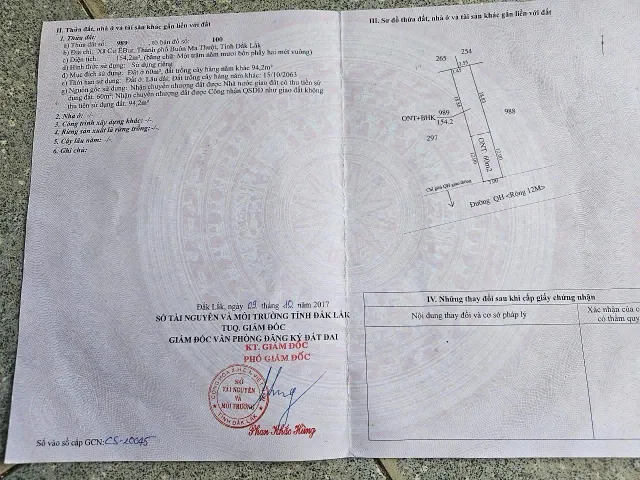 II. Thửa đất, nhà ở và tài sản khác gắn liền với đất
1. Thửa đất:
a) Thửa đất số: 989, tờ bản đồ số: 100
b) Địa chỉ: Xã Cư ÊBur, Thành phố Buôn Ma Thuột, Tỉnh Đắk Lắk
c) Diện tích: 154,2m², (bằng chữ: Một trăm năm mươi bốn phẩy hai mét vuông)
d) Hình thức sử dụng: Sử dụng riêng
đ) Mục đích sử dụng: Đất ở 60m²; đất trồng cây hàng năm khác 94,2m²
e) Thời hạn sử dụng: Đất ở: Lâu dài; Đất trồng cây hàng năm khác: 15/10/2063
g) Nguồn gốc sử dụng: Nhận chuyển nhượng đất được Nhà nước giao đất có thu tiền sử
dụng đất: 60m²; Nhận chuyển nhượng đất được Công nhận QSDĐ như giao đất không
thu tiền sử dụng đất: 94,2m²
2. Nhà ở: -/-
3. Công trình xây dựng khác: -/-
4. Rừng sản xuất là rừng trồng: -/-
5. Cây lâu năm: -/-
6. Ghi chú:
Đắk Lắk, ngày 09 tháng 10 năm 2017
SỞ TÀI NGUYÊN VÀ MÔI TRƯỜNG TỈNH ĐẮK LẮK
TUQ. GIÁM ĐỐC
GIÁM ĐỐC VĂN PHÒNG ĐĂNG KÝ ĐẤT ĐAI
KT. GIÁM ĐỐC
PHÓ GIÁM ĐỐC
SỞ
TÀI NGUYÊN
VÀ
MÔI TRƯỜNG
TỈNH ĐẮK LẮK
Phan Khắc Hùng
Số vào sổ cấp GCN: CS-20045
III. Sơ đồ thửa đất, nhà ở và tài sản khác gắn liền với đất
254
265
988
989
ONT+BHK
154.2
297
ONT 60m2
12.00
12.00
5.00
Chỉ giới QH giao thông
Đường QH <Rộng 12M>
IV. Những thay đổi sau khi cấp giấy chứng nhận
Nội dung thay đổi và cơ sở pháp lý
Xác nhận của c
có thẩm quy